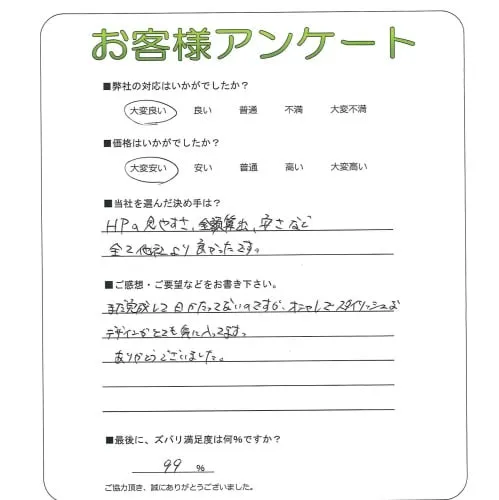 お客様アンケート
■弊社の対応はいかがでしたか？
大変良い 良い 普通 不満 大変不満
■価格はいかがでしたか？
大変安い 安い 普通 高い 大変高い
■当社を選んだ決め手は？
HPの見やすさ、金額算出、安さなど
全て他社より良かったです。
■ご感想・ご要望などをお書き下さい。
まだ完成して日がたってないのですが、オシャレでスタイリッシュな
デザインがとても気に入ってます。
ありがとうございました。
■最後に、ズバリ満足度は何％ですか？
99 %
ご協力頂き、誠にありがとうございました。